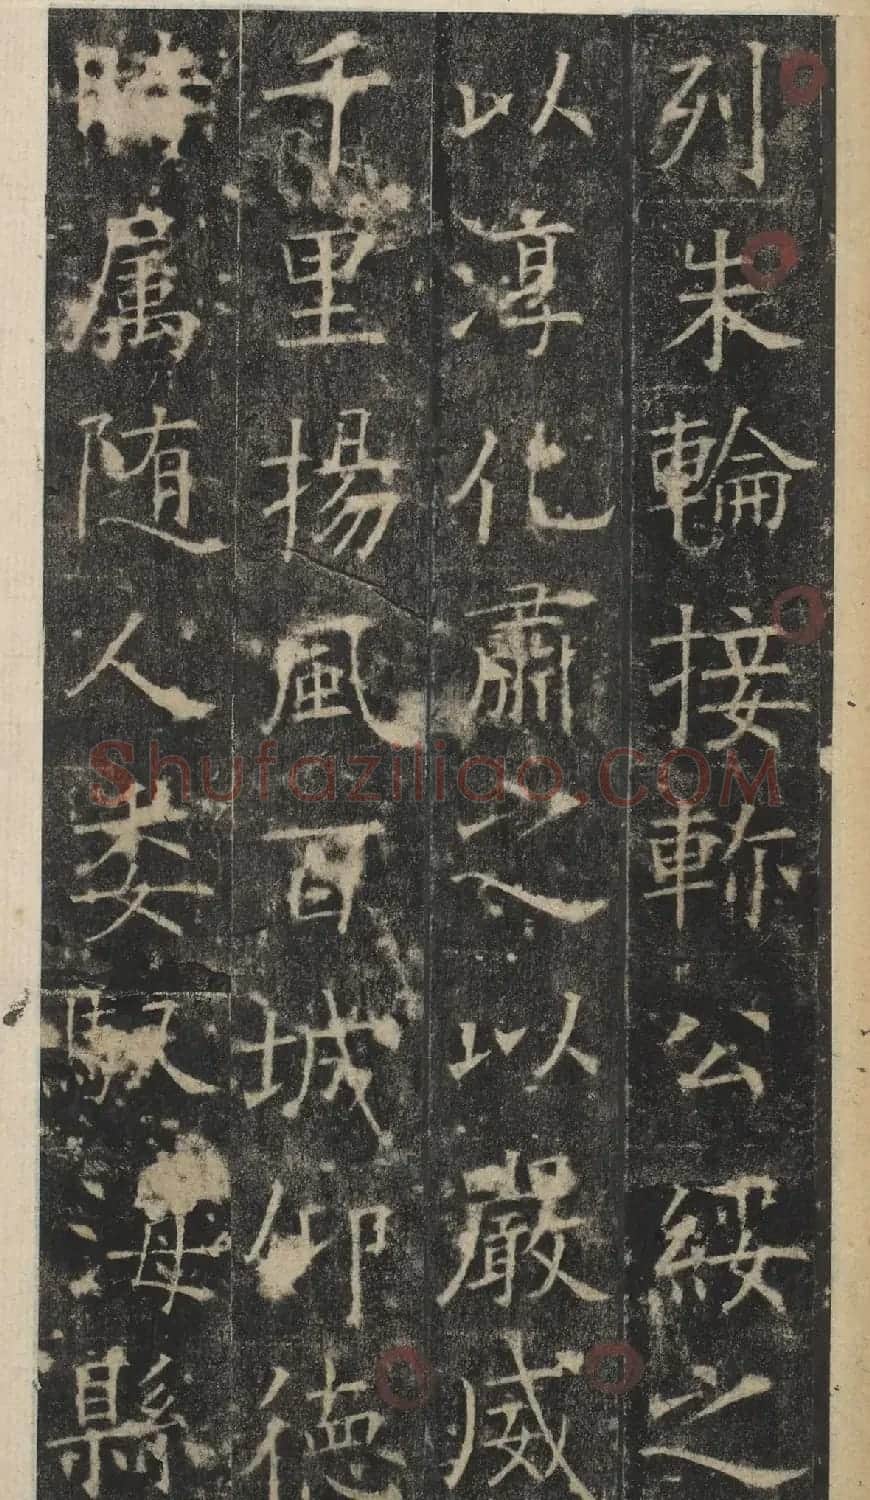 列朱輪接軫公綏之
以淳化肅之以嚴威
千里揚風百城仰德
時属随人委馭母縣
Shufaziliao.COM